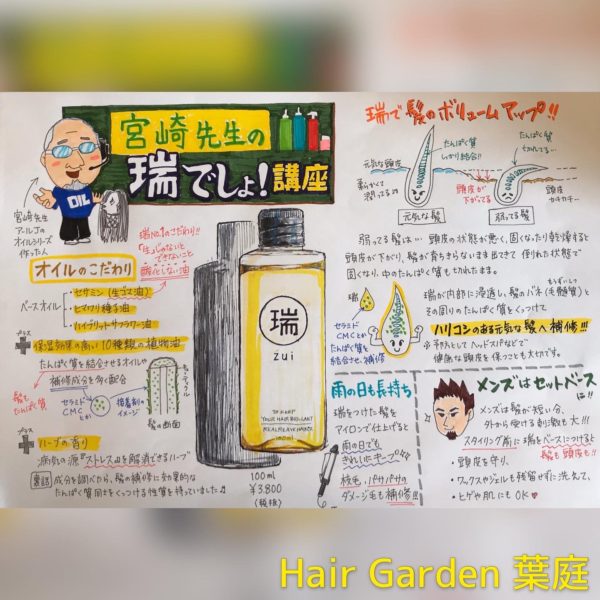 宮崎先生の
瑞でしょ!講座
宮崎先生
アールJの
オイルシリーズ
作った人
OIL
オイルのこだわり
瑞No.1のこだわり!!
「生」じゃないと
できないこと
酸化しない油
ベースオイル
・セサミン(生ゴマ油)
・ヒマワリ種子油
・ハイブリッドサフラワー油
プラス
保湿効果の高い10種類の植物油
たんぱく質を結合させるオイルや
補修成分を多く配合
髪も
たんぱく質
セラミド
CMCとか
接着剤の
イメージ
キューティクル
髪の断面
プラス
ハーブの香り
病気の源『ストレス』を解消できるハーブ
裏話
成分を調べたら、髪の補修に効果的な
たんぱく質同士をくっつける性質を持っていました♫
瑞
zui
TO KEEP
YOUR HAIR BRILLIANT
100ml
100ml
¥3,800
(税抜)
瑞で髪のボリュームアップ!!
元気な頭皮
柔らかくて
潤ってるョ
たんぱく質
しっかり結合!!
元気な髪
頭皮が
下がってる
たんぱく質
切れしてる…
弱ってる髪
頭皮
カチカチ…
弱ってる髪は… 頭皮の状態が悪く、固くなったり乾燥すると
頭皮が下がり、髪が育ちきらないまま出てきて倒れた状態で
固くなり、中のたんぱく質も切れたまま。
瑞
セラミド
CMCとか
たんぱく質を
結合させ、補修
瑞が内部に浸透し、髪のバネ(毛髄質)と
もうずいしつ
その周りのたんぱく質をくっつけて
ハリコシのある元気な髪へ補修!!!
※予防としてヘッドスパなどで
健康な頭皮を保つことも大切です。
雨の日も長持ち
瑞をつけた髪を
アイロンで仕上げると
雨の日でも
きれいにキープ☆
枝毛、パサパサの
ダメージ毛も補修!!!
メンズはセットベース
に!!
メンズは髪が短い分、
外から受ける刺激も大!!!
スタイリング前に瑞をベースにつけると
髪も頭皮も!!
・頭皮を守り、
・ワックスやジェルも残留せずに洗えて、
・ヒゲや肌にもOK♥
Hair Garden 葉庭